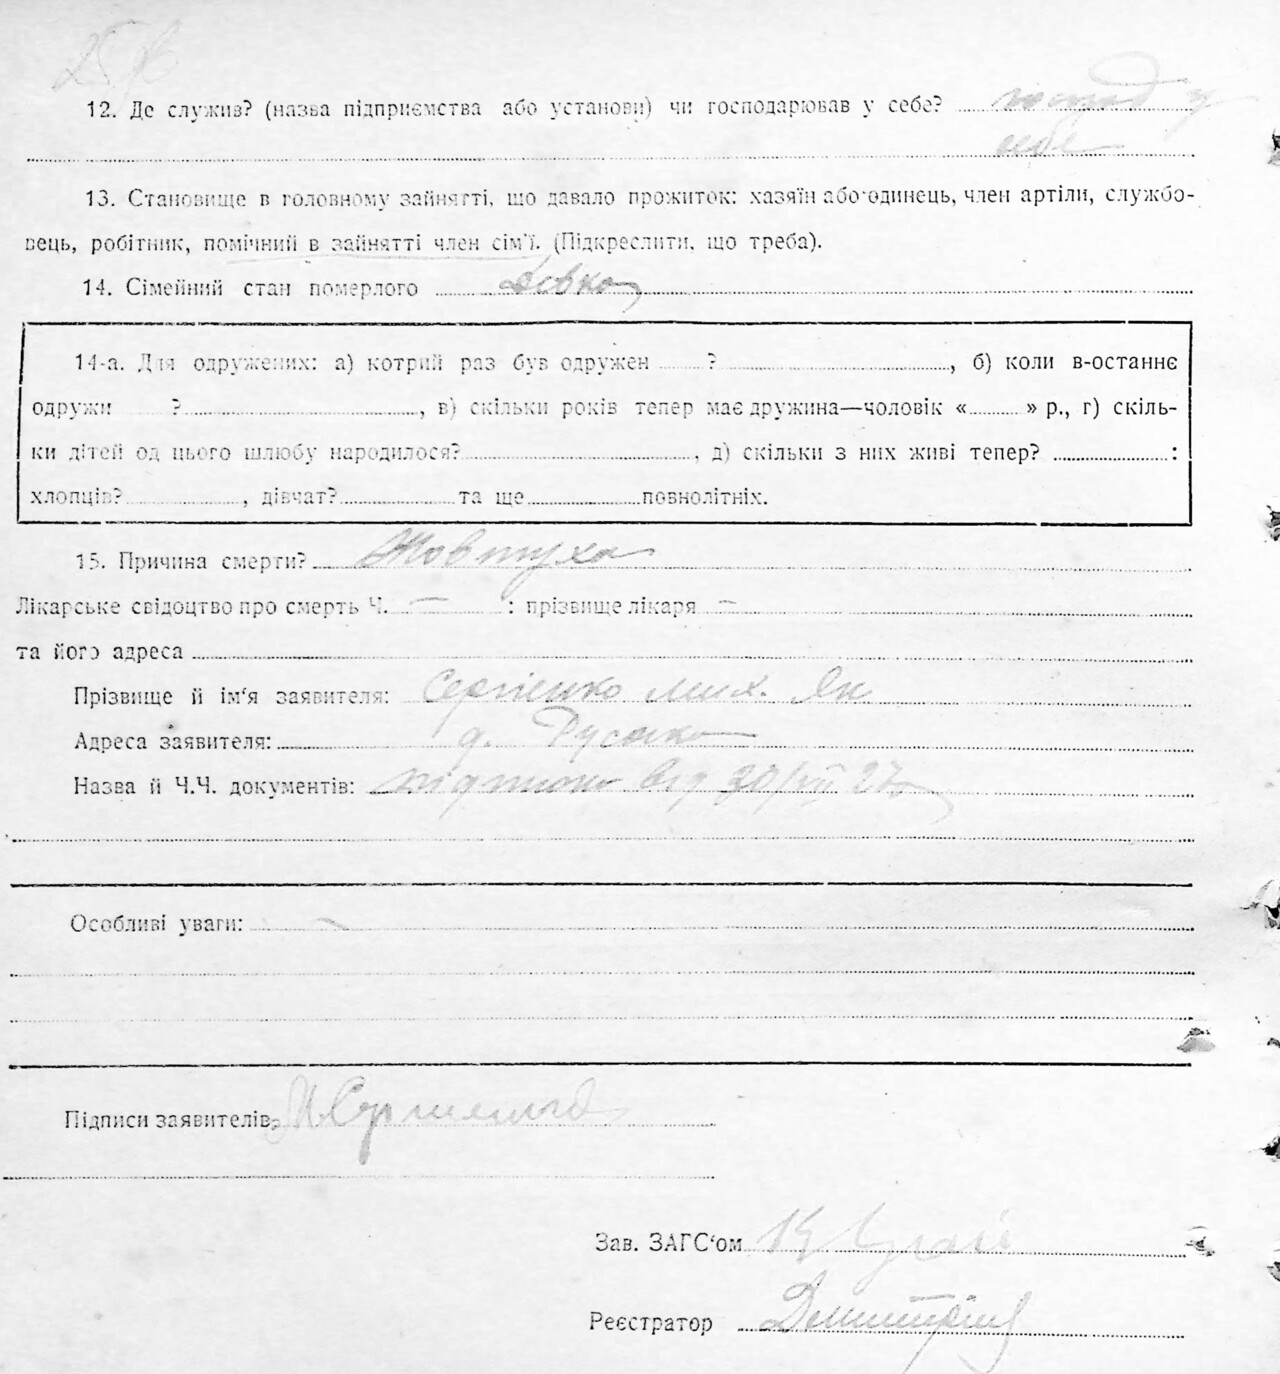 12. Де служив? (назва підприємства або установи) чи господарював у себе? господ у
себе
13. Становище в головному зайнятті, що давало прожиток: хазяїн або одинець, член артіли, службо-
вець, робітник, помічний в зайнятті член сім'ї. (Підкреслити, що треба).
14. Сімейний стан померлого Дівка
14-а. Для одружених: а) котрий раз був одружен ?, б) коли в-останнє
одружи ?, в) скільки років тепер має дружина—чоловік « » р., г) скіль-
ки дітей од цього шлюбу народилося?, д) скільки з них живі тепер? :
хлопців?, дівчат? та ще повнолітніх.
15. Причина смерти? Жовтуха
Лікарське свідоцтво про смерть Ч. — : прізвище лікаря —
та його адреса
Прізвище й ім'я заявителя: Сергієнко Мих. Як
Адреса заявителя: д. Русаки
Назва й Ч.Ч. документів: від 30/VII 27
Особливі уваги:
Підписи заявителів,
Зав. ЗАГС'ом
Реєстратор